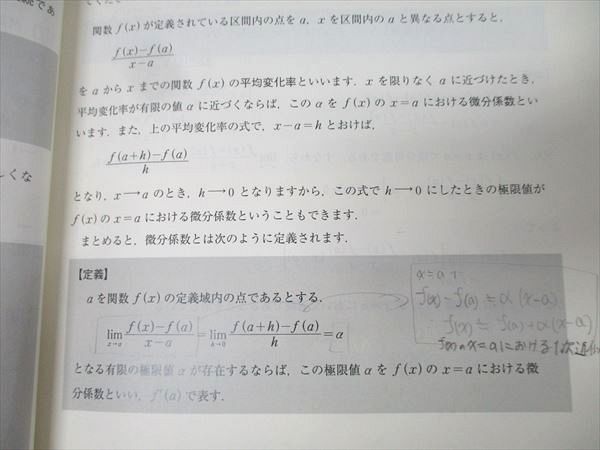 関数 f(x) が定義されている区間内の点を a, x を区間内の a と異なる点とすると,
f(x)−f(a)
x−a
を a から x までの関数 f(x) の平均変化率といいます. x を限りなく a に近づけたとき,
平均変化率が有限の値 α に近づくならば, この α を f(x) の x=a における微分係数とい
います. また, 上の平均変化率の式で, x−a=h とおけば,
f(a+h)−f(a)
h
しくな
となり, x→a のとき, h→0 となりますから, この式で h→0 にしたときの極限値が
f(x) の x=a における微分係数ということもできます.
まとめると, 微分係数とは次のように定義されます.
【定義】
a を関数 f(x) の定義域内の点であるとする.
lim x→a f(x)−f(a) / x−a = lim h→0 f(a+h)−f(a) / h = α
となる有限の極限値 α が存在するならば, この極限値 α を f(x) の x=a における微
分係数といい, f′(a) で表す.
f(x)−f(a)≒α(x−a)
f(x)≒f(a)+α(x−a)
f(x)の x=aにおける1次近似